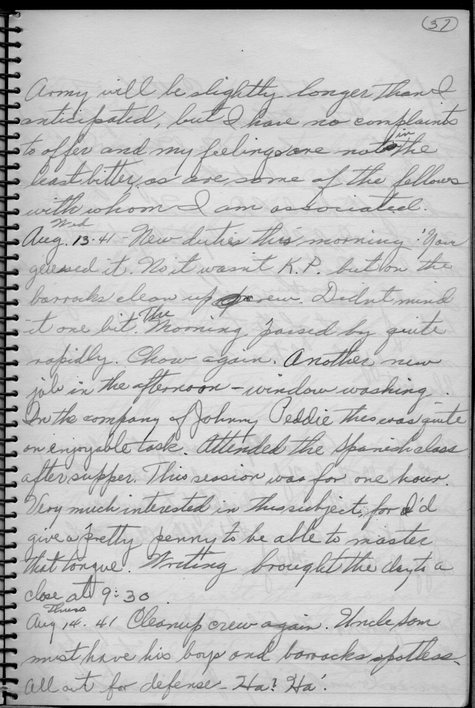 (37)
Army will be slightly longer than I
anticipated, but I have no complaints
to offer and my feelings are not in the
least bitter, as are some of the fellows
with whom I am associated.
Wed
Aug. 13-41 - New duties this morning. Your
guessed it. No it wasnt K.P. but on the
barracks clean up crew. Didnt mind
it one bit. The Morning passed by quite
rapidly. Chow again. Another new
job in the afternoon - window washing.
In the company of Johnny Peddie this was quite
an enjoyable task. Attended the Spanish class
after supper. This session was for one hour.
Very much interested in this subject, for I'd
give a pretty penny to be able to master
that tongue. Writting brought the day to a
close at 9:30.
Thurs
Aug 14-41 Cleanup crew again. Uncle Sam
must have his boys and barracks spotless.
All out for defense - Ha! Ha!